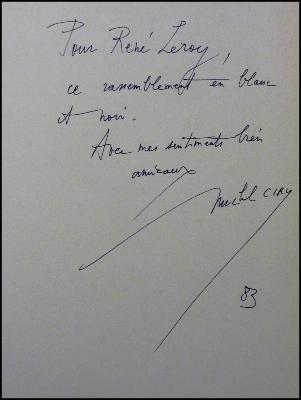 Pour René Leroy,
ce rassemblement en blanc
et noir.
Avec mes sentiments bien
amicaux
Michel CIRY
83